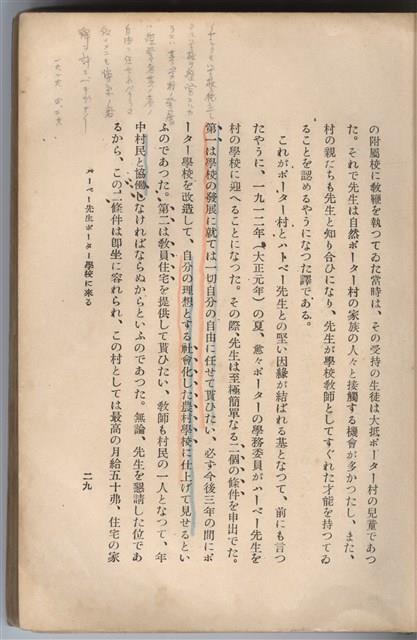 の附屬校に敎鞭を執つてゐた當時は、その受持の生徒は大抵ポーター村の兒童であつ
た。それで先生は自然ポーター村の家族の人々と接觸する機會が多かつたし、また、
村の親たちも先生と知り合ひになり、先生が學校敎師としてすぐれた才能を持つてゐ
ることを認めるやうになつた譯である。
これがポーター村とハーベー先生との堅い因緣が結ばれる基となつて、前にも言つ
たやうに、一九一二年（大正元年）の夏、愈々ポーターの學務委員がハーベー先生を
村の學校に迎へることになつた。その際、先生は至極簡單なる二個の條件を申出でた。
第一は學校の發展に就ては一切自分の自由に任せて貰ひたい、必ず今後三年の間にポ
ーター學校を改造して、自分の理想とする社會化した農村學校に仕上げて見せるとい
ふのであつた。第二は敎員住宅を提供して貰ひたい、敎師も村民の一人となつて、年
中村民と協働しなければならぬからといふのであつた。無論、先生を懇請した位であ
るから、この二條件は卽坐に容れられ、この村としては最高の月給五十弗、住宅の家
ハーベー先生ポーター學校に來る
二九